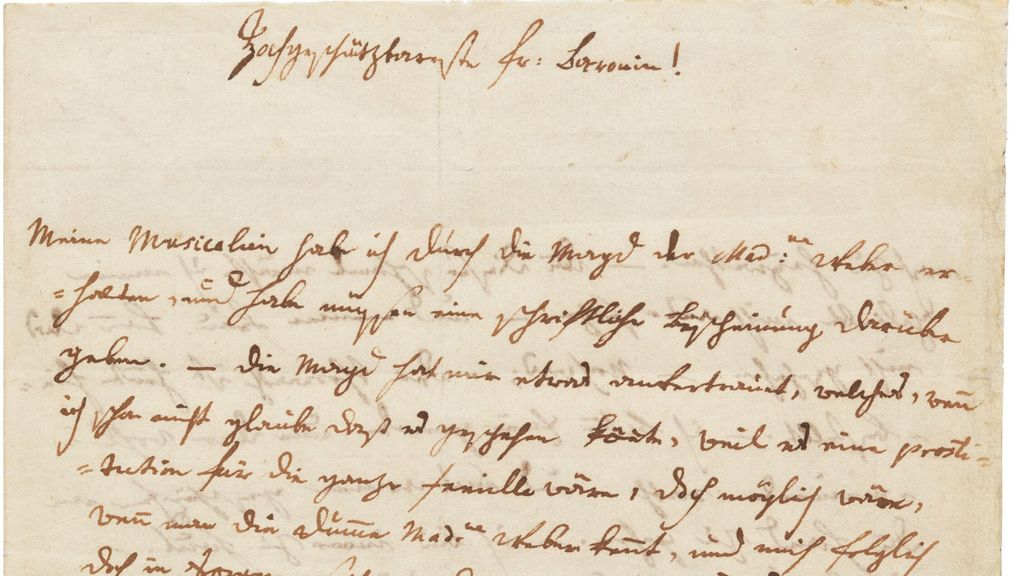 Hochgeschätzbareste fr: Baronin!
Meine Musicalien habe ich durch die Magd der Mad:me Weber er=
=halten, und habe müssen eine schriftliche bescheinung darüber
geben. — die Magd hat mir etwas anvertrauet, welches, wenn
ich schon nicht glaube daß es geschehen könnte, weil es eine prosti=
=tution für die ganze famille wäre, doch möglich wäre,
wenn man die dumme Mad:me Weber kennt, und mich folglich
doch in